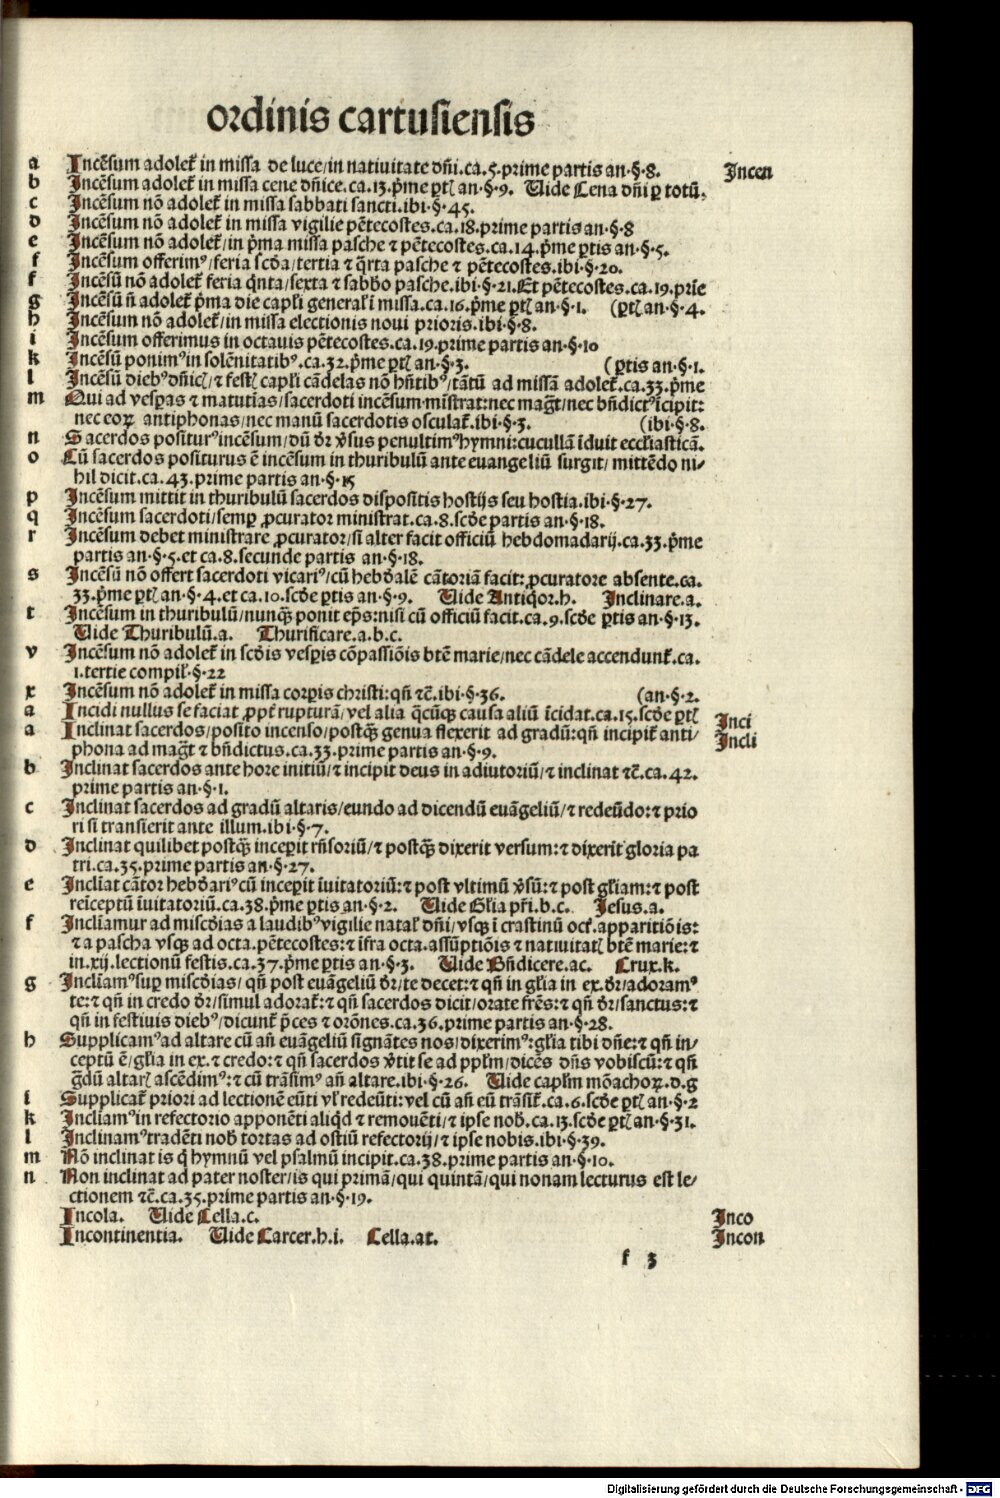 ordinis cartusiensis
a Incẽsum adoleť in missa de luce/in natiuitate dñi.ca.5.prime partis an.§.8. Incen
b Incẽsum adoleť in missa cene dñice.ca.13.p̃me ꝑtꝭ an.§.9. Uide Cena dñi ꝑ totũ.
c Incẽsum nõ adoleť in missa sabbati sancti.ibi.§.45.
d Incẽsum nõ adoleť in missa vigilie pẽtecostes.ca.18.prime partis an.§.8
e Incẽsum nõ adoleť/in p̃ma missa pasche ⁊ pẽtecostes.ca.14.p̃me ꝑtis an.§.5.
f Incẽsum offerimꝰ/feria scďa/tertia ⁊ q̃rta pasche ⁊ pẽtecostes.ibi.§.20.
f Incẽsũ nõ adoleť feria q̃nta/sexta ⁊ sabbo pasche.ibi.§.21.Et pẽtecostes.ca.19.prĩe
g Incẽsũ ñ adoleť p̃ma die capľi generalĩ missa.ca.16.p̃me ꝑtꝭ an.§.1. (ꝑtꝭ an.§.4.
h Incẽsum nõ adoleť/in missa electionis noui prioris.ibi.§.8.
i Incẽsum offerimus in octauis pẽtecostes.ca.19.prime partis an.§.10
k Incẽsũ ponimꝰ in solẽnitatibꝰ.ca.32.p̃me ꝑtꝭ an.§.3. (ꝑtis an.§.1.
l Incẽsũ diebꝰ dñicꝭ/⁊ festꝭ capľi cãdelas nõ hñtibꝰ/tãtũ ad missã adoleť.ca.33.p̃me
m Qui ad vesꝑas ⁊ matutĩas/sacerdoti incẽsum mĩstrat:nec mag̃t/nec bñdictꝰ ĩcipit:
nec eoꝝ antiphonas/nec manũ sacerdotis osculať.ibi.§.3. (ibi.§.8.
n Sacerdos positurꝰ incẽsum/dũ ďr ṽsus penultimꝰ hymni:cucullã ĩduit eccľiasticã.
o Cũ sacerdos positurus ẽ incẽsum in thuribulũ ante euangeliũ surgit/mittẽdo ni/
hil dicit.ca.43.prime partis an.§.15
p Incẽsum mittit in thuribulũ sacerdos dispositis hostijs seu hostia.ibi.§.27.
q Incẽsum sacerdoti/semꝑ ꝓcurator ministrat.ca.8.scďe partis an.§.18.
r Incẽsum debet ministrare ꝓcurator/si alter facit officiũ hebdomadarij.ca.33.p̃me
partis an.§.5.et ca.8.secunde partis an.§.18.
s Incẽsũ nõ offert sacerdoti vicariꝰ/cũ hebďalẽ cãtoriã facit:ꝓcuratore absente.ca.
33.p̃me ꝑtꝭ an.§.4.et ca.10.scďe ꝑtis an.§.9. Uide Antiq̃or.h. Inclinare.a.
t Incẽsum in thuribulũ/nunqꝫ ponit ep̃s:nisi cũ officiũ facit.ca.9.scďe ꝑtis an.§.13.
Uide Thuribulũ.a. Thurificare.a.b.c.
v Incẽsum nõ adoleť in scďis vesꝑis cõpassiõis btẽ marie/nec cãdele accendunť.ca.
1.tertie compiľ.§.22
x Incẽsum nõ adoleť in missa corꝑis christi:qñ ⁊c̃.ibi.§.36. (an.§.2.
a Incidi nullus se faciat ꝓpť rupturã/vel alia q̃cũqꝫ causa aliũ ĩcidat.ca.15.scďe ꝑtꝭ Inci
a Inclinat sacerdos/posito incenso/postqꝫ genua flexerit ad gradũ:qñ incipiť anti/ Incli
phona ad mag̃t ⁊ bñdictus.ca.33.prime partis an.§.9.
b Inclinat sacerdos ante hore initiũ/⁊ incipit deus in adiutoriũ/⁊ inclinat ⁊c̃.ca.42.
prime partis an.§.1.
c Inclinat sacerdos ad gradũ altaris/eundo ad dicendũ euãgeliũ/⁊ redeũdo:⁊ prio
ri si transierit ante illum.ibi.§.7.
d Inclinat quilibet postqꝫ inceꝑit rñsoriũ/⁊ postqꝫ dixerit versum:⁊ dixerit gloria pa
tri.ca.35.prime partis an.§.27.
e Inclĩat cãtor hebďariꝰ cũ inceꝑit ĩuitatoriũ:⁊ post vltimũ ṽsũ:⁊ post gľiam:⁊ post
reĩceptũ ĩuitatoriũ.ca.38.p̃me ꝑtis an.§.2. Uide Gľia pr̃i.b.c. Jesus.a.
f Inclĩamur ad miscďias a laudibꝰ vigilie natať dñi/vsqꝫ ĩ crastinũ octẽ.apparitiõis:
⁊ a pascha vsqꝫ ad octa.pẽtecostes:⁊ ĩfra octa.assũptiõis ⁊ natiuitatꝭ btẽ marie:⁊
in.xij.lectionũ festis.ca.37.p̃me ꝑtis an.§.3. Uide Bñdicere.ac. Crux.k.
g Inclĩamꝰ suꝑ miscďias/qñ post euãgeliũ ďr/te decet:⁊ qñ in gľia in ex.ďr/adoramꝰ
te:⁊ qñ in credo ďr/simul adorať:⁊ qñ sacerdos dicit/orate fr̃es:⁊ qñ ďr/sanctus:⁊
qñ in festiuis diebꝰ/dicunť p̃ces ⁊ orõnes.ca.36.prime partis an.§.28.
h Supplicamꝰ ad altare cũ añ euãgeliũ signãtes nos/dixerimꝰ:gľia tibi dñe:⁊ qñ in/
ceptũ ẽ/gľia in ex.⁊ credo:⁊ qñ sacerdos ṽtit se ad ppľm/dicẽs dñs vobiscũ:⁊ qñ
g̃dũ altarꝭ ascẽdimꝰ:⁊ cũ trãsimꝰ añ altare.ibi.§.26. Uide capľm mõachoꝝ.d.g
i Supplicať priori ad lectionẽ eũti vľ redeũti:vel cũ añ eũ trãsiť.ca.6.scďe ꝑtꝭ an.§.2
k Incliamꝰ in refectorio apponẽti aliq̃d ⁊ remouẽti/⁊ ipse noƀ.ca.13.scďe ꝑtꝭ an.§.31.
l Inclinamꝰ tradẽti noƀ tortas ad ostiũ refectorij/⁊ ipse nobis.ibi.§.39.
m Nõ inclinat is q̃ hymnũ vel psalmũ incipit.ca.38.prime partis an.§.10.
n Non inclinat ad pater noster/is qui primã/qui quintã/qui nonam lecturus est le/
ctionem ⁊c̃.ca.35.prime partis an.§.19.
Incola. Uide Cella.c. Inco
Incontinentia. Uide Carcer.h.i. Cella.at. Incon
f 3
Digitalisierung gefördert durch die Deutsche Forschungsgemeinschaft - DFG